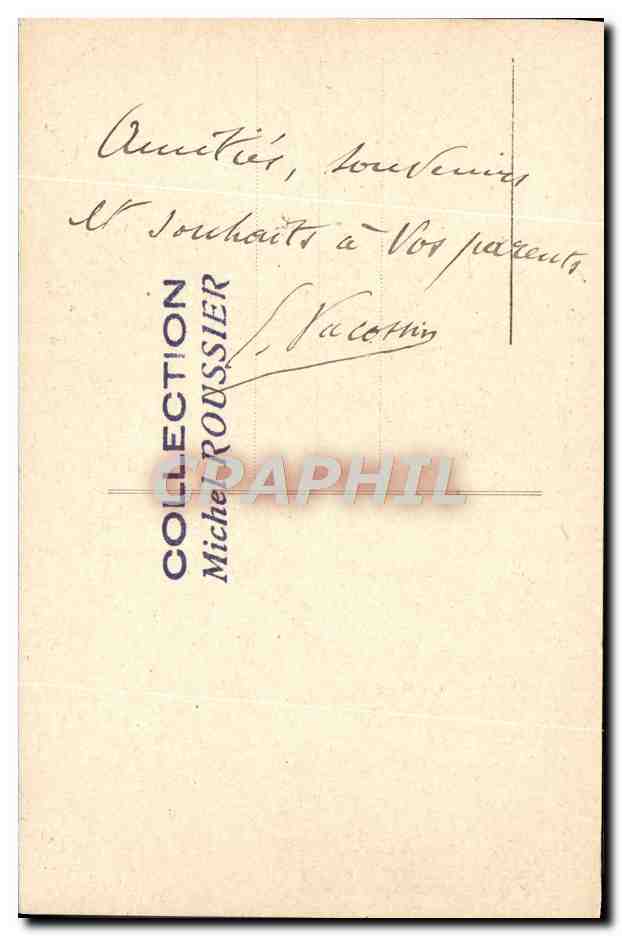 Amitiés, souvenirs
et souhaits à Vos parents
COLLECTION
Michel ROUSSIER
CPAPHIL